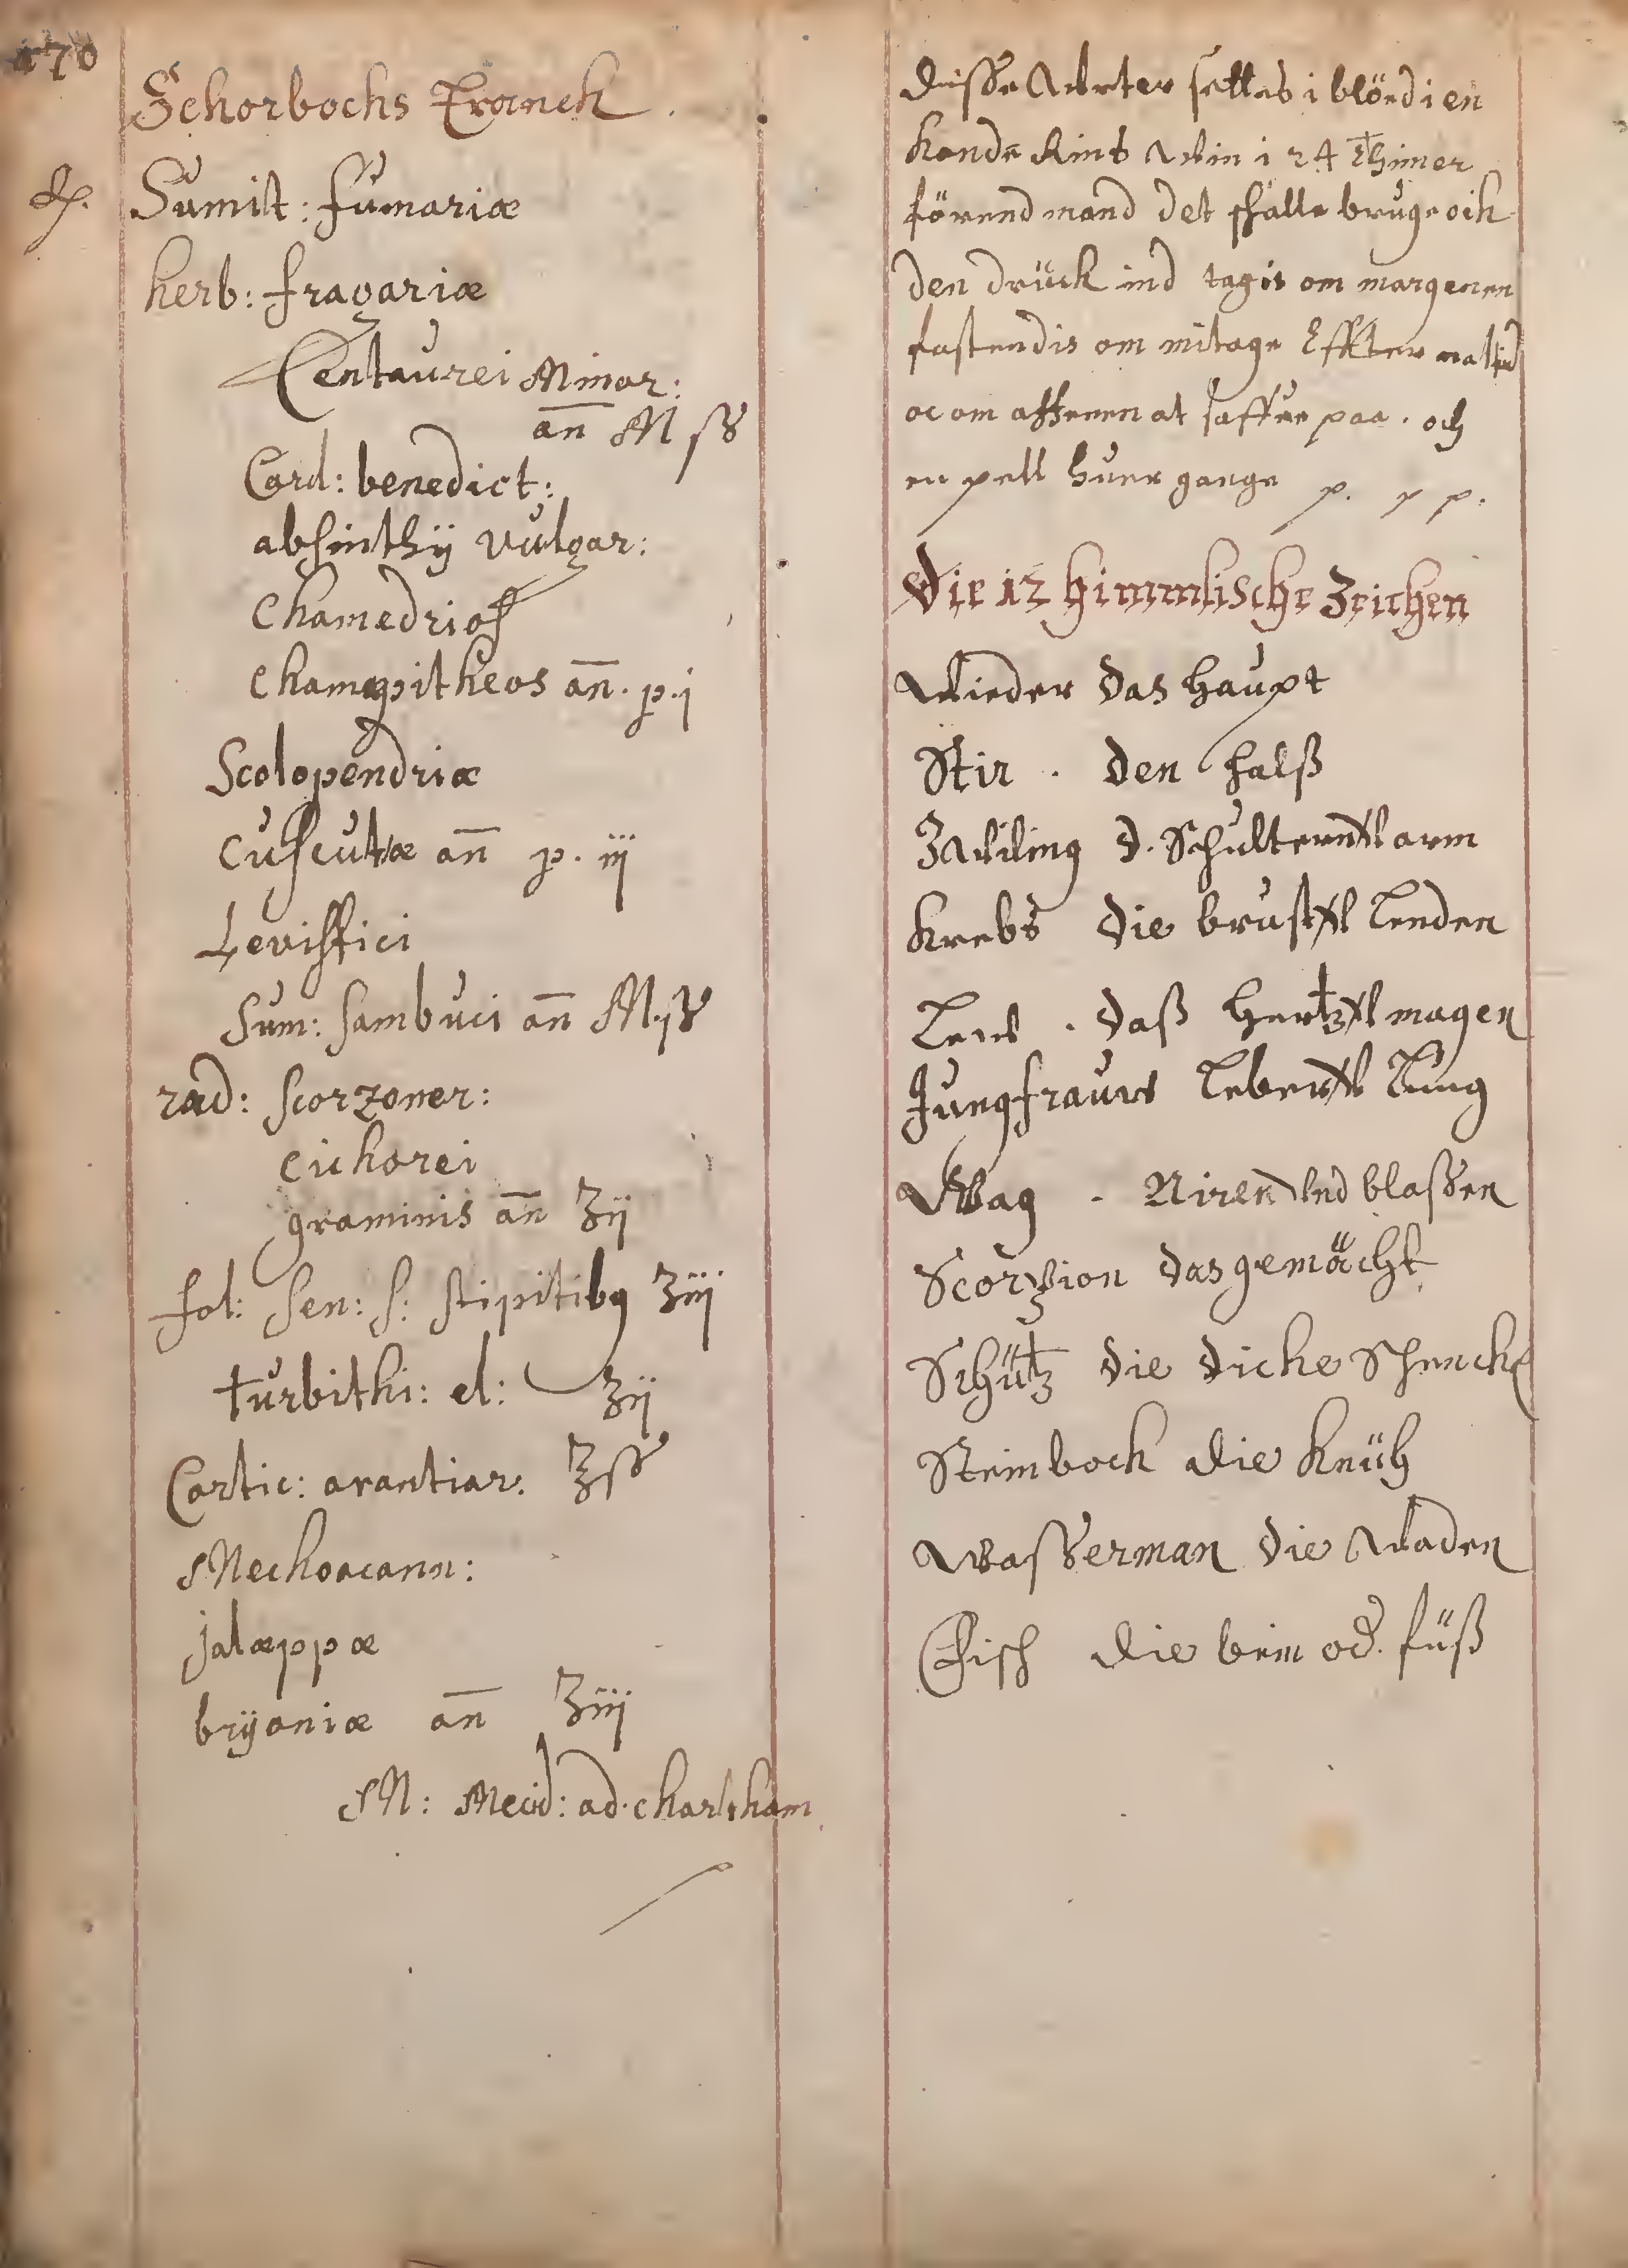 170
Schorbochs Tranck.
Rp. Sumit: fumariæ
herb: fragariæ
Centaurei Minor:
an̄ M ß
Card: benedict:
absinthÿ vulgar:
Chamedrios
Chamepitheos an̄. p.j
Scolopendriæ
Cuscutæ an̄ p. iij
Levistici
Sum: sambuci an̄ M.ß
rad: scorzoner:
cichorei
graminis an̄ ʒij
fol: sen: s: stipitibꝰ ʒiij
turbithi: el: ʒij
Cortic: arantiar. ʒß
Mechoacann:
jalæppæ
brÿoniæ an̄ ʒiij
M: ad. chartham
Disse Urter settes i blöed i en
kande Rins Win i 24 Thimer
förend mand det skalle bruge och
den drück ind tagis om margenen
fastendis om mitage Effter maltid
oc om afftenen at saffue paa. och
en pell huer gange p. p p.
Die 12 himmlische Zeichen
Wieder das haupt
Stir . den halß
Zwiling d. Schultern Vd arm
Krebs die brust Vd Lenden
Leuw . daß hertz Vd magen
Jungfrauw Leber Vd Lung
Wag . Niren Vnd blassen
Scorpion das gemächt
Schütz die dicke Schenckel
Steinbock die knüh
Wasserman die Waden
Fisch die bein od. füß